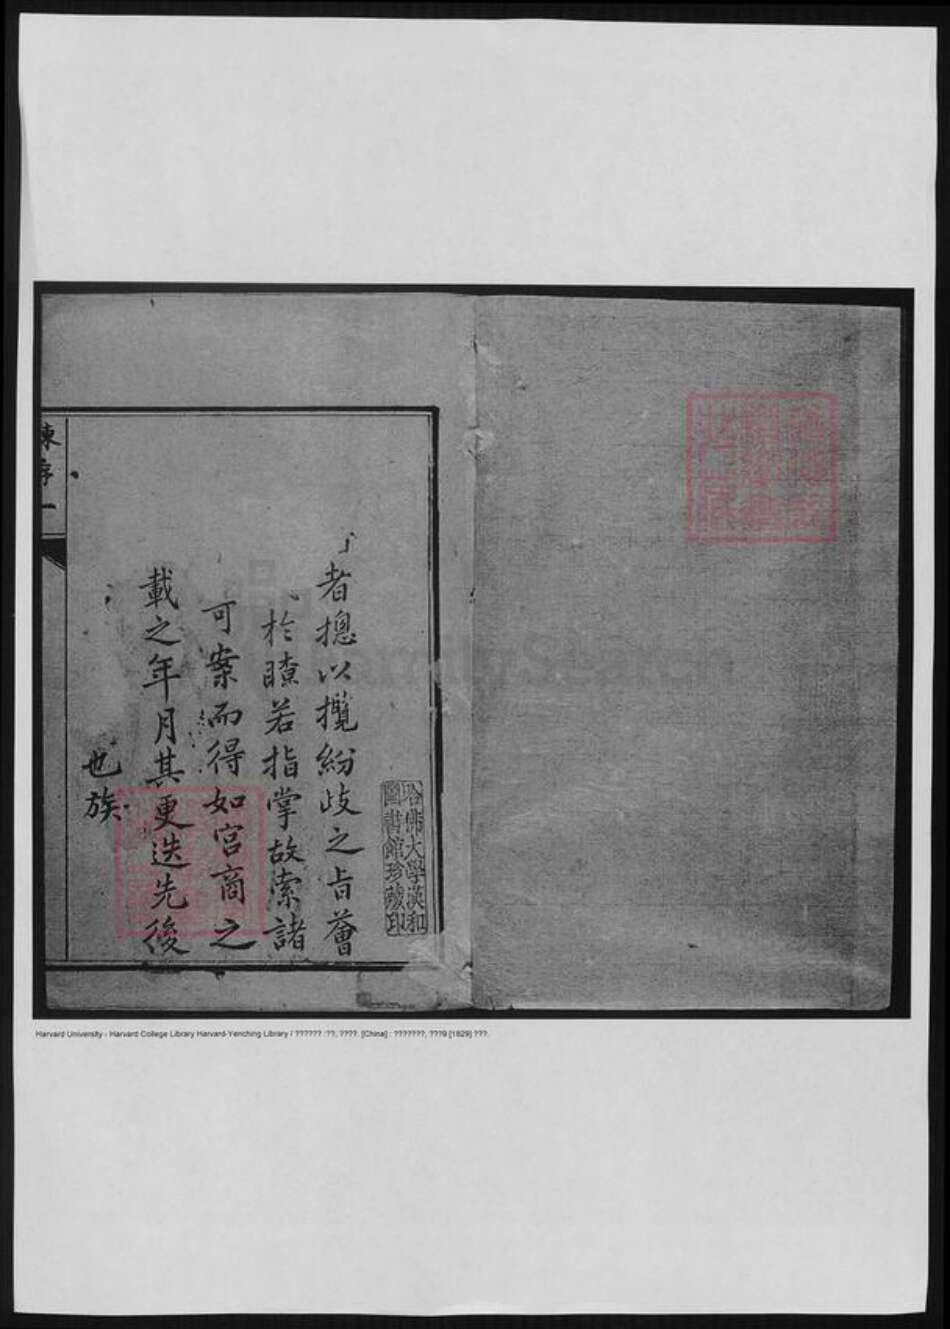 者摠以攬紛歧之旨薈
於瞭若指掌故索諸
可案而得如宮商之
載之年月其更迭先後
也族
陳序一
哈佛大學漢和
圖書館珍藏印
FamilySearch
Harvard University - Harvard College Library Harvard-Yenching Library / ?????? :??, ????. [China] : ???????, ???9 [1829] ???.